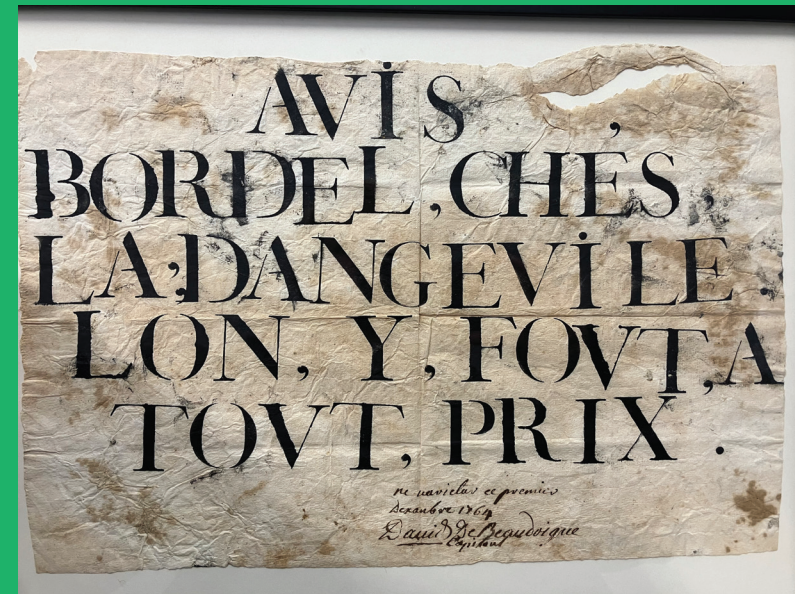 AVİS
BORDEL, CHÉS,
LA, DANGEVİLE
LON, Y, FOVT, A
TOVT, PRIX.
ne varietur ce premier
Decembre 1764
David De Beaudrigue
Capitoul